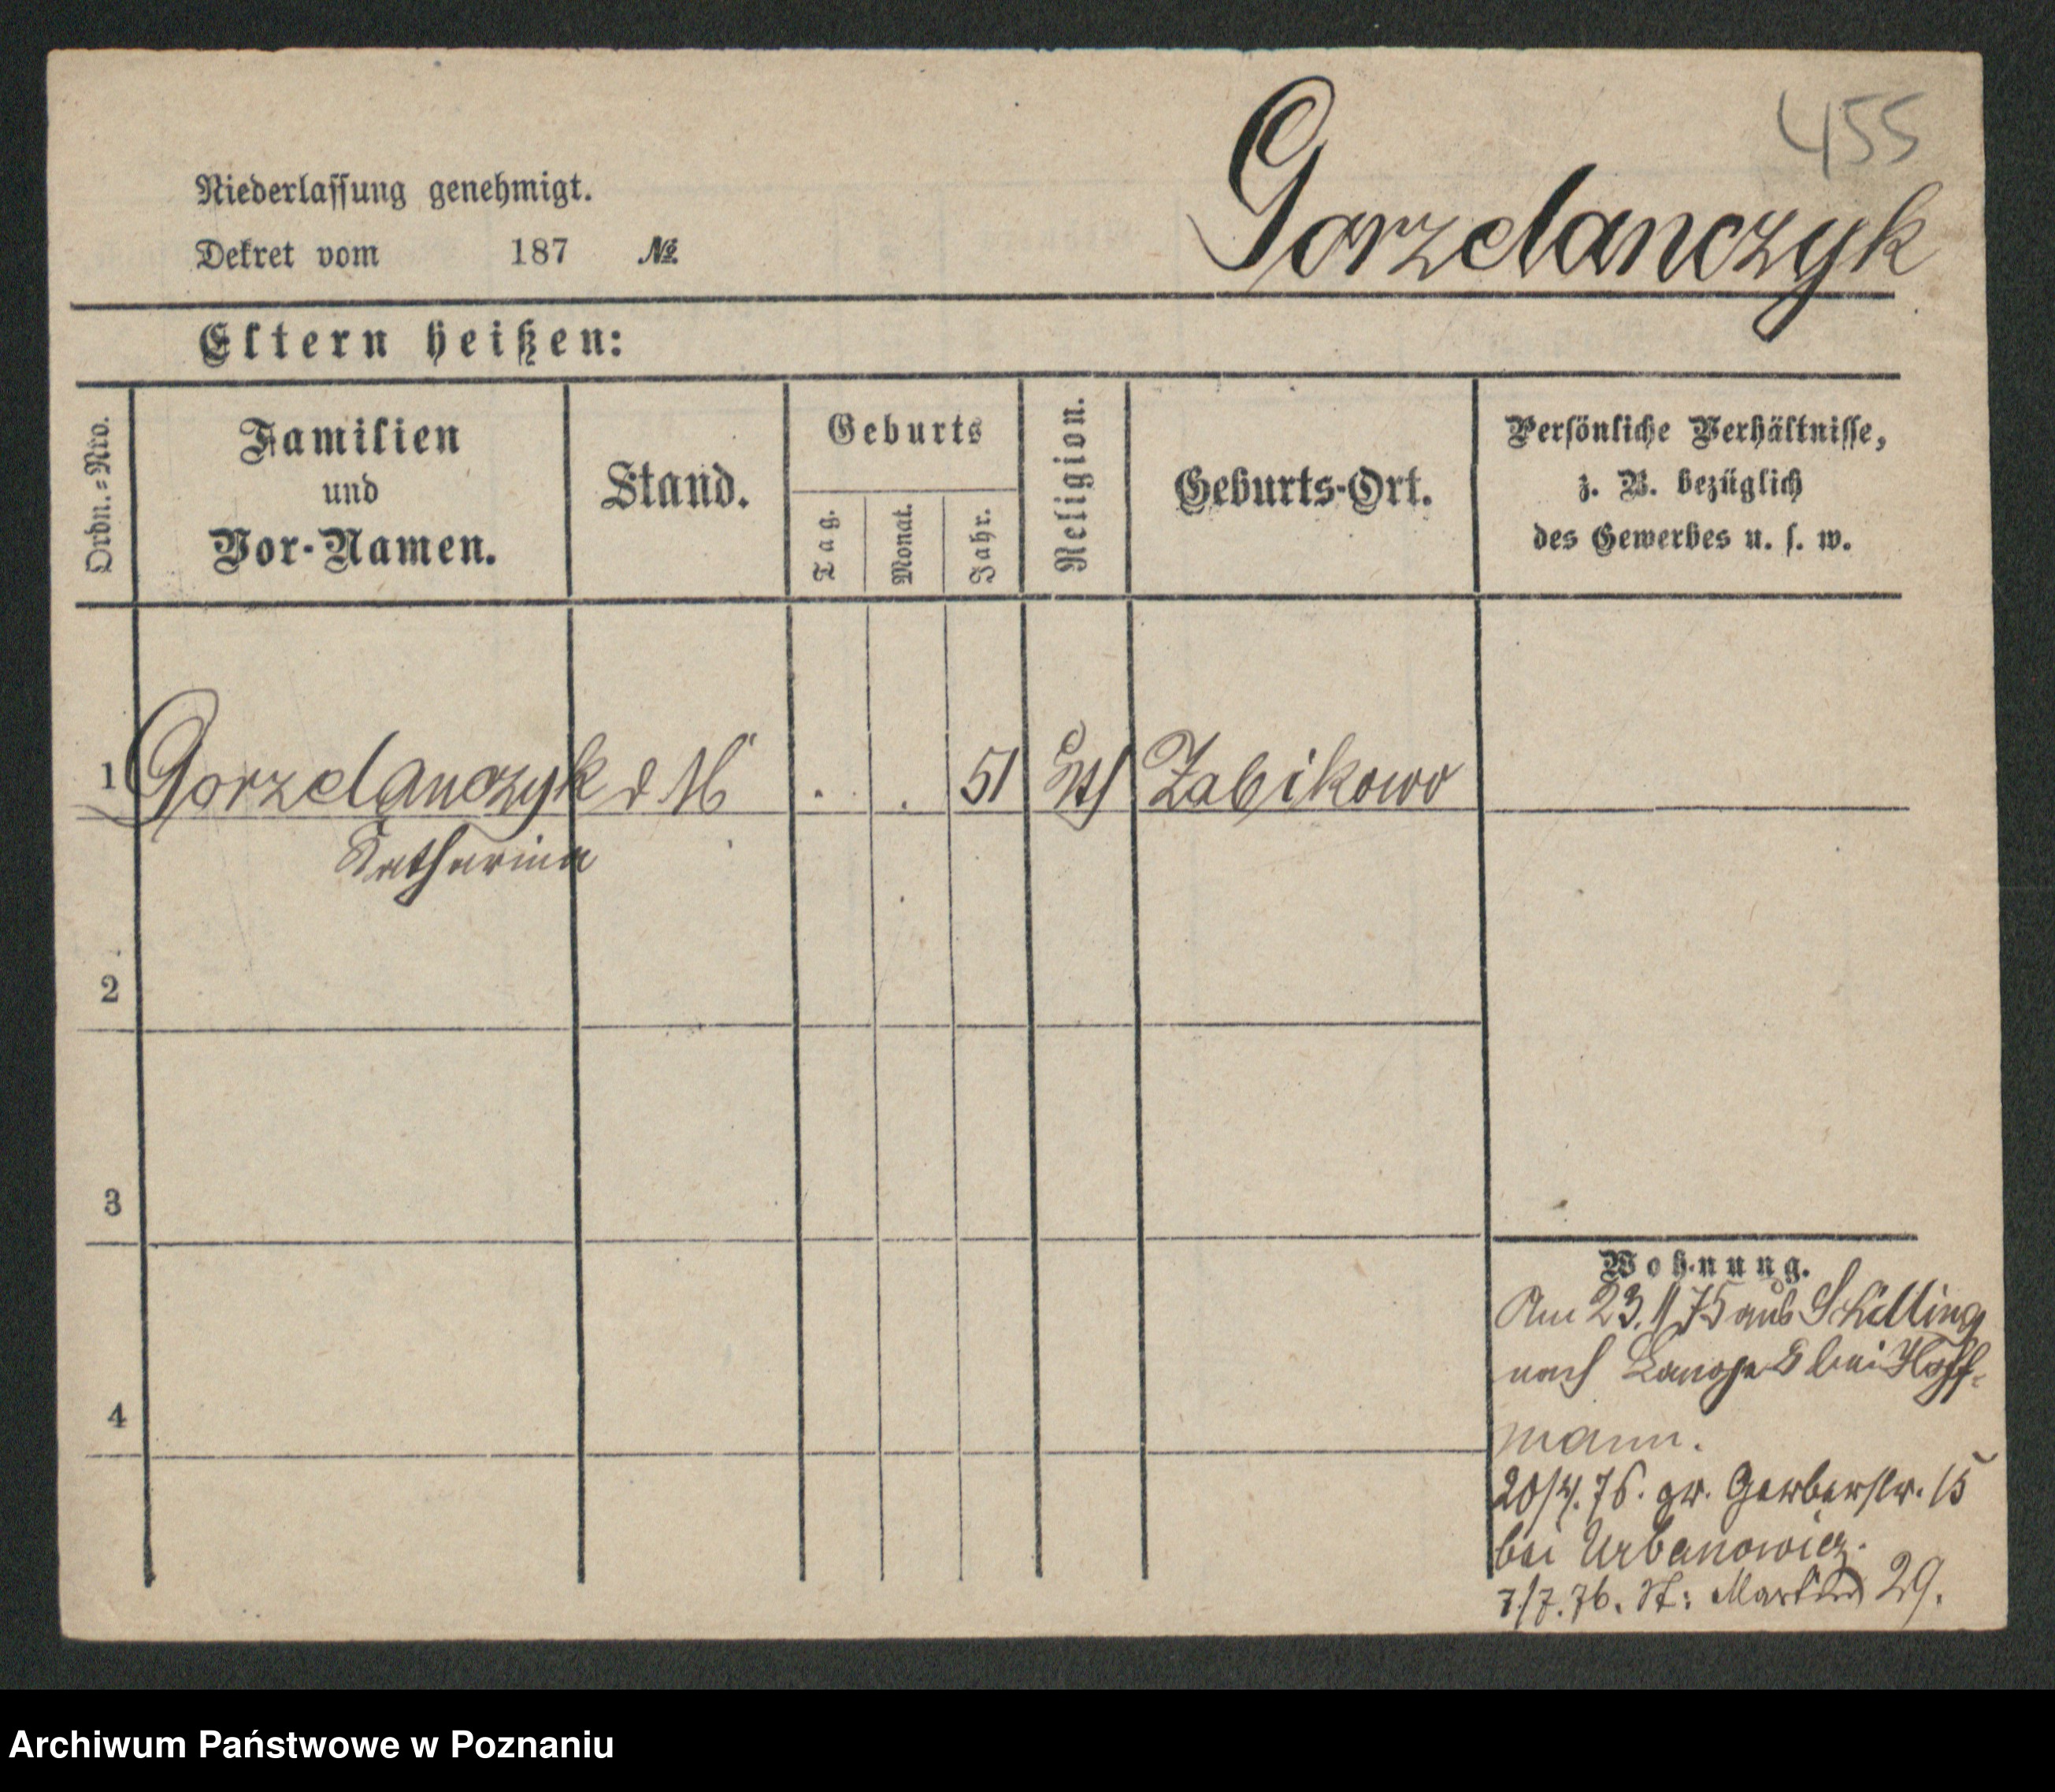 455
Gorzelanczyk
Niederlassung genehmigt.
Dekret vom 187 №
Eltern heißen:
Ordn.=Nro.
Familien
und
Vor-Namen.
Stand.
Geburts
Tag.
Monat.
Jahr.
Religion.
Geburts-Ort.
Persönliche Verhältnisse,
z. B. bezüglich
des Gewerbes u. s. w.
1 Gorzelanczyk d M 51 Kth Zabikowo
Katharina
2
3
4
Wohnung.
Am 23. 11 75 aus Schilling
nach Lange bei Hoff-
mann.
20/4. 76. gr. Gerberstr. 15
bei Urbanowicz.
7/7. 76. St: Martin 29.
Archiwum Państwowe w Poznaniu